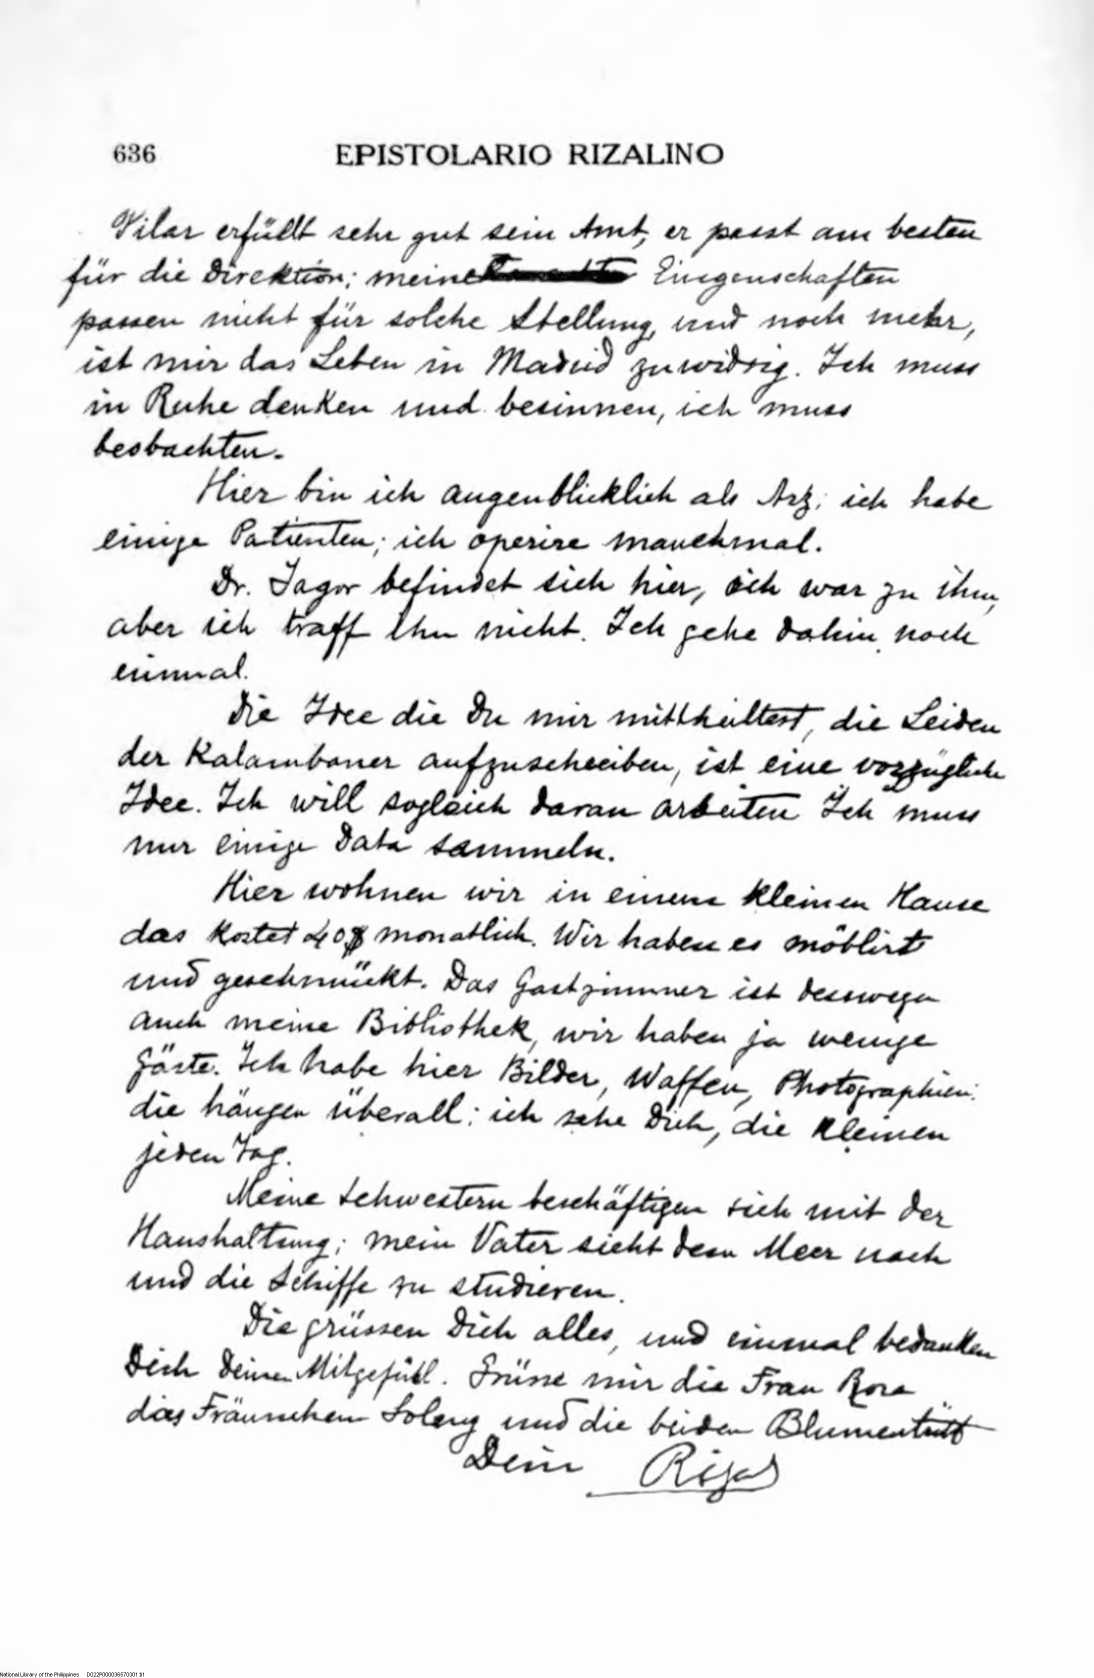 636 EPISTOLARIO RIZALINO
Vilar erfüllt sehr gut sein Amt, er passt am besten
für die Direktion; meine Eingenschaften
passen nicht für solche Stellung, und noch mehr,
ist mir das Leben in Madrid zuwidrig. Ich muss
in Ruhe denken und besinnen, ich muss
beobachten.
Hier bin ich augenblicklich als Arz; ich habe
einige Patienten; ich operire manchmal.
Dr. Jagor befindet sich hier, ich war zu ihm,
aber ich traff ihn nicht. Ich gehe dahin noch
einmal.
Die Idee die Du mir mittheiltest, die Leiden
der Kalambaner aufzuschreiben, ist eine vorzügliche
Idee. Ich will sogleich daran arbeiten Ich muss
nur einige Data sammeln.
Hier wohnen wir in einem kleinen Hause
das kostet 40$ monatlich. Wir haben es möblirt
und geschmückt. Das Gastzimmer ist desswegen
auch meine Bibliothek, wir haben ja wenige
Gäste. Ich habe hier Bilder, Waffen, Photographien:
die hängen überall: ich sehe Dich, die kleinen
jeden Tag.
Meine Schwestern beschäftigen sich mit der
Haushaltung; mein Vater sieht dem Meer nach
und die Schiffe zu studieren.
Die grüssen Dich alles, und einmal bedanken
Dich Deinen Mitgefühl. Grüsse mir die Frau Rosa
das Fräunchen Loleng und die beiden Blumentritt
Dein Rizal
National Library of the Philippines